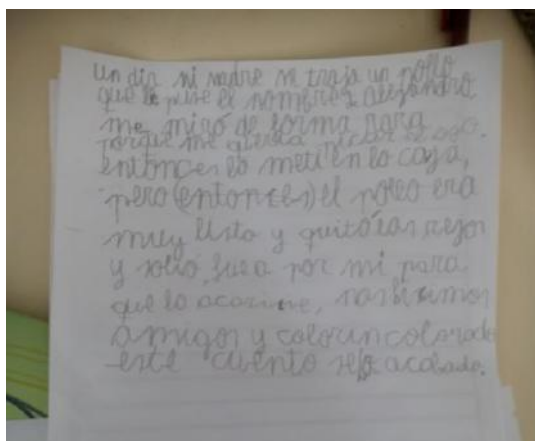 Un dia mi madre me trajo un pollo
que le puse el nombre alejandro
me miró de forma rara
porque me queria picar el ojo.
entonces lo meti en la caja,
pero (entonces) el pollo era
muy listo y quitó las rejas
y salió, fue a por mi para
que lo acaricie, nos hicimos
amigos y colorin colorado
este cuento se a acabado.